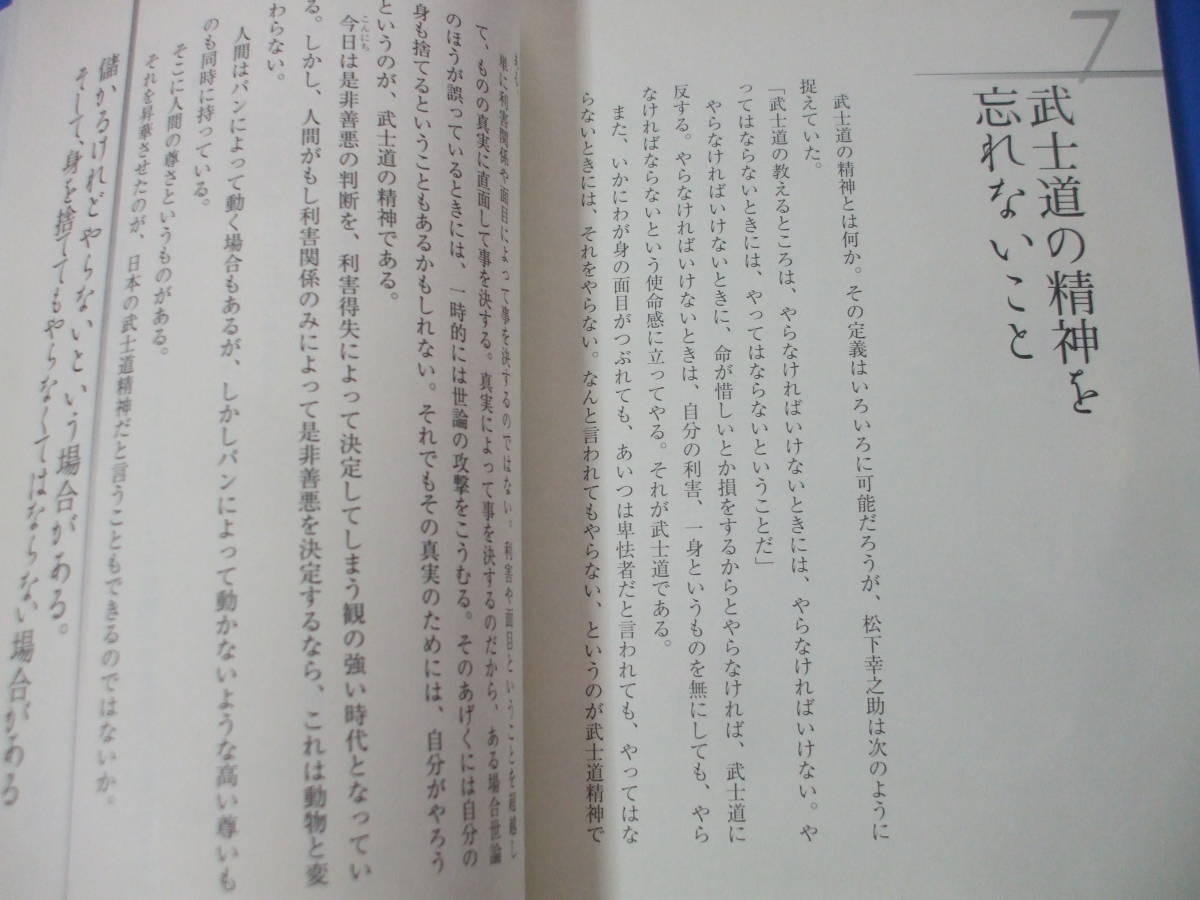 7
武士道の精神を
忘れないこと
武士道の精神とは何か。その定義はいろいろに可能だろうが、松下幸之助は次のように
捉えていた。
「武士道の教えるところは、やらなければいけないときには、やらなければいけない。や
ってはならないときには、やってはならないということだ」
やらなければいけないときに、命が惜しいとか損をするからとやらなければ、武士道に
反する。やらなければいけないときは、自分の利害、一身というものを無にしても、やら
なければならないという使命感に立ってやる。それが武士道である。
また、いかにわが身の面目がつぶれても、あいつは卑怯者だと言われても、やってはな
らないときには、それをやらない。なんと言われてもやらない、というのが武士道精神で
ある。
単に利害関係や面目によって事を決するのではない。利害や面目ということを超越し
て、ものの真実に直面して事を決する。真実によって事を決するのだから、ある場合世論
のほうが誤っているときには、一時的には世論の攻撃をこうむる。そのあげくには自分の
身も捨てるということもあるかもしれない。それでもその真実のためには、自分がやろう
というのが、武士道の精神である。
今日は是非善悪の判断を、利害得失によって決定してしまう観の強い時代となってい
る。しかし、人間がもし利害関係のみによって是非善悪を決定するなら、これは動物と変
わらない。
人間はパンによって動く場合もあるが、しかしパンによって動かないような高い尊いも
のも同時に持っている。
そこに人間の尊さというものがある。
それを昇華させたのが、日本の武士道精神だと言うこともできるのではないか。
儲かるけれどやらないという場合がある。
そして、身を捨ててもやらなくてはならない場合がある